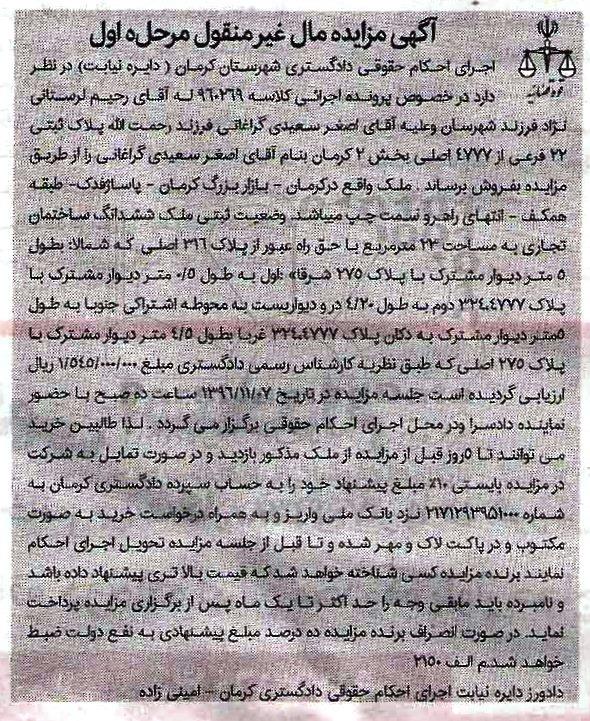 آگهی مزایده مال غیر منقول مرحله اول
اجرای احکام حقوقی دادگستری شهرستان کرمان ( دایره نیابت) در نظر
دارد در خصوص پرونده اجرائی کلاسه ۹۶۰۲۶۹ له آقای رحیم لرستانی
نژاد فرزند شهرسان وعلیه آقای اصغر سعیدی گراغانی فرزند رحمت الله پلاک ثبتی
۲۲ فرعی از ۴۷۷۷ اصلی بخش ۲ کرمان بنام آقای اصغر سعیدی گراغانی را از طریق
مزایده بفروش برساند . ملک واقع درکرمان - بازار بزرگ کرمان - پاساژفدک- طبقه
همکف - انتهای راهرو سمت چپ میباشد. وضعیت ثبتی ملک ششدانگ ساختمان
تجاری به مساحت ۲۳ مترمربع با حق راه عبور از پلاک ۳۹۶ اصلی که شمالا: بطول
۵ متر دیوار مشترک با پلاک ۲۷۵ شرقا» :اول به طول ۰/۵ متر دیوار مشترک با
پلاک ۳۲۴.۴۷۷۷ دوم به طول ۴/۲۰ در و دیواریست به محوطه اشتراکی جنوبا به طول
۵متر دیوار مشترک به دکان پلاک ۳۲۴.۴۷۷۷ غربا بطول ۴/۵ متر دیوار مشترک با
پلاک ۲۷۵ اصلی که طبق نظریه کارشناس رسمی دادگستری مبلغ ۱/۵۴۵/۰۰۰/۰۰۰ ریال
ارزیابی گردیده است جلسه مزایده در تاریخ ۱۳۹۶/۱۱/۰۷ ساعت ده صبح با حضور
نماینده دادسرا ودر محل اجرای احکام حقوقی برگزار می گردد . لذا طالبین خرید
می توانند تا ۵روز قبل از مزایده از ملک مذکور بازدید و در صورت تمایل به شرکت
در مزایده بایستی ۱۰٪ مبلغ پیشنهاد خود را به حساب سپرده دادگستری کرمان به
شماره ۲۱۷۱۲۹۳۹۵۱۰۰۰ نزد بانک ملی واریز و به همراه درخواست خرید به صورت
مکتوب و در پاکت لاک و مهر شده و تا قبل از جلسه مزایده تحویل اجرای احکام
نمایند برنده مزایده کسی شناخته خواهد شد که قیمت بالا تری پیشنهاد داده باشد
و نامبرده باید مابقی وجه را حد اکثر تا یک ماه پس از برگزاری مزایده پرداخت
نماید. در صورت انصراف برنده مزایده ده درصد مبلغ پیشنهادی به نفع دولت ضبط
خواهد شد.م الف ۲۱۵۰
دادورز دایره نیابت اجرای احکام حقوقی دادگستری کرمان - امینی زاده